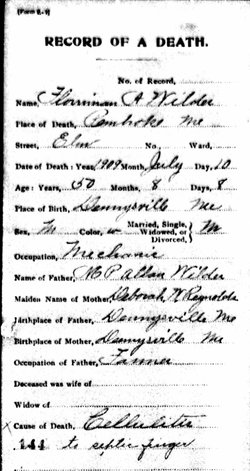 (Form R-9)
RECORD OF A DEATH.
No. of Record,
Name, Florriman A Wilder
Place of Death, Pembroke Me
Street, Elm No. Ward,
Date of Death: Year, 1909 Month, July Day, 10
Age: Years, 50 Months, 8 Days, 8
Place of Birth, Dennysville Me
Sex, M Color, w Married, Single, Widowed, or Divorced, } M
Occupation, Mechanic
Name of Father, Allan Wilder
Maiden Name of Mother, Deborah Reynolds
Birthplace of Father, Dennysville Me
Birthplace of Mother, Dennysville Me
Occupation of Father, Tanner
Deceased was wife of
Widow of
Cause of Death, Cellulitis
144 to septic finger